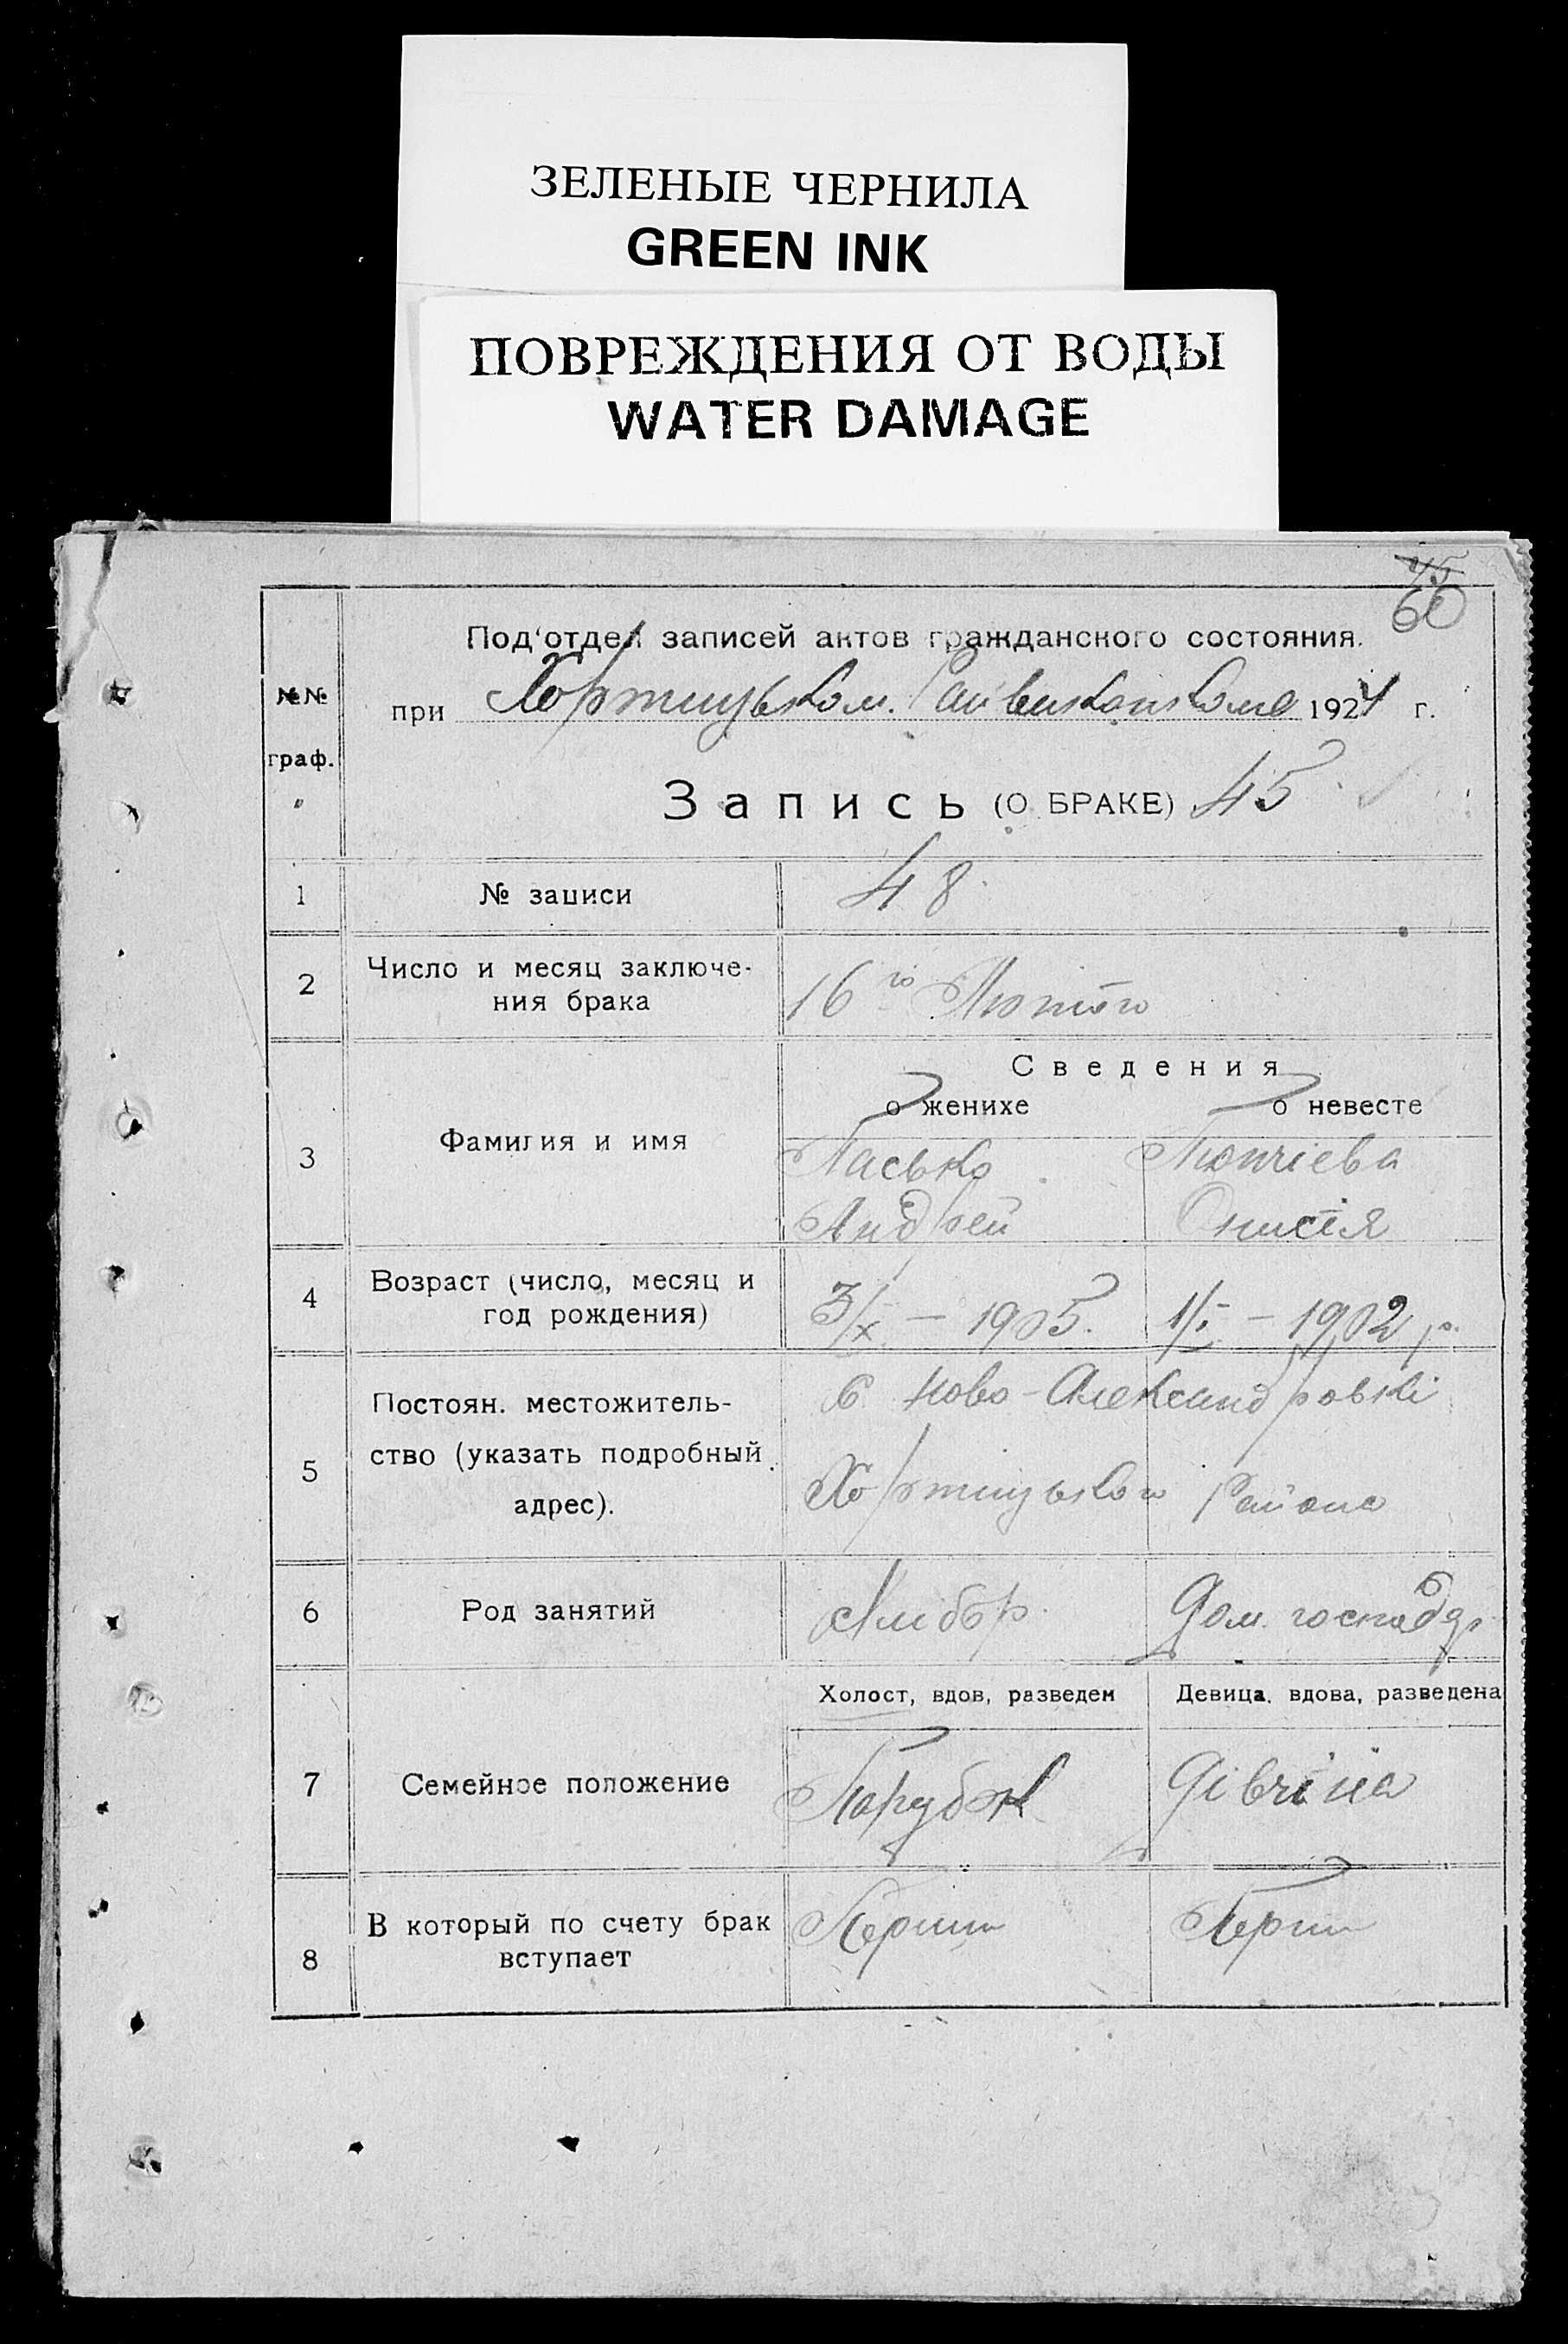 ЗЕЛЕНЫЕ ЧЕРНИЛА
GREEN INK
ПОВРЕЖДЕНИЯ ОТ ВОДЫ
WATER DAMAGE
45
60
№№ граф.
Под'отдел записей актов гражданского состояния.
при Хортицьком. Райвиконкоме 1924 г.
Запись (О БРАКЕ) 45
1 № записи 48
2 Число и месяц заключе-
ния брака 16го Лютого
Сведения
о женихе о невесте
3 Фамилия и имя Пасько
Андрей Онисія
4 Возраст (число, месяц и
год рождения) 3/X – 1905. 1/I – 1902 р.
5 Постоян. местожитель-
ство (указать подробный
адрес).
С Ново-Александровкі
Хортицького Району
6 Род занятий Дом. господар
Холост, вдов, разведен Девица, вдова, разведена
7 Семейное положение Парубок Дівчіна
8 В который по счету брак
вступает Перши Перши